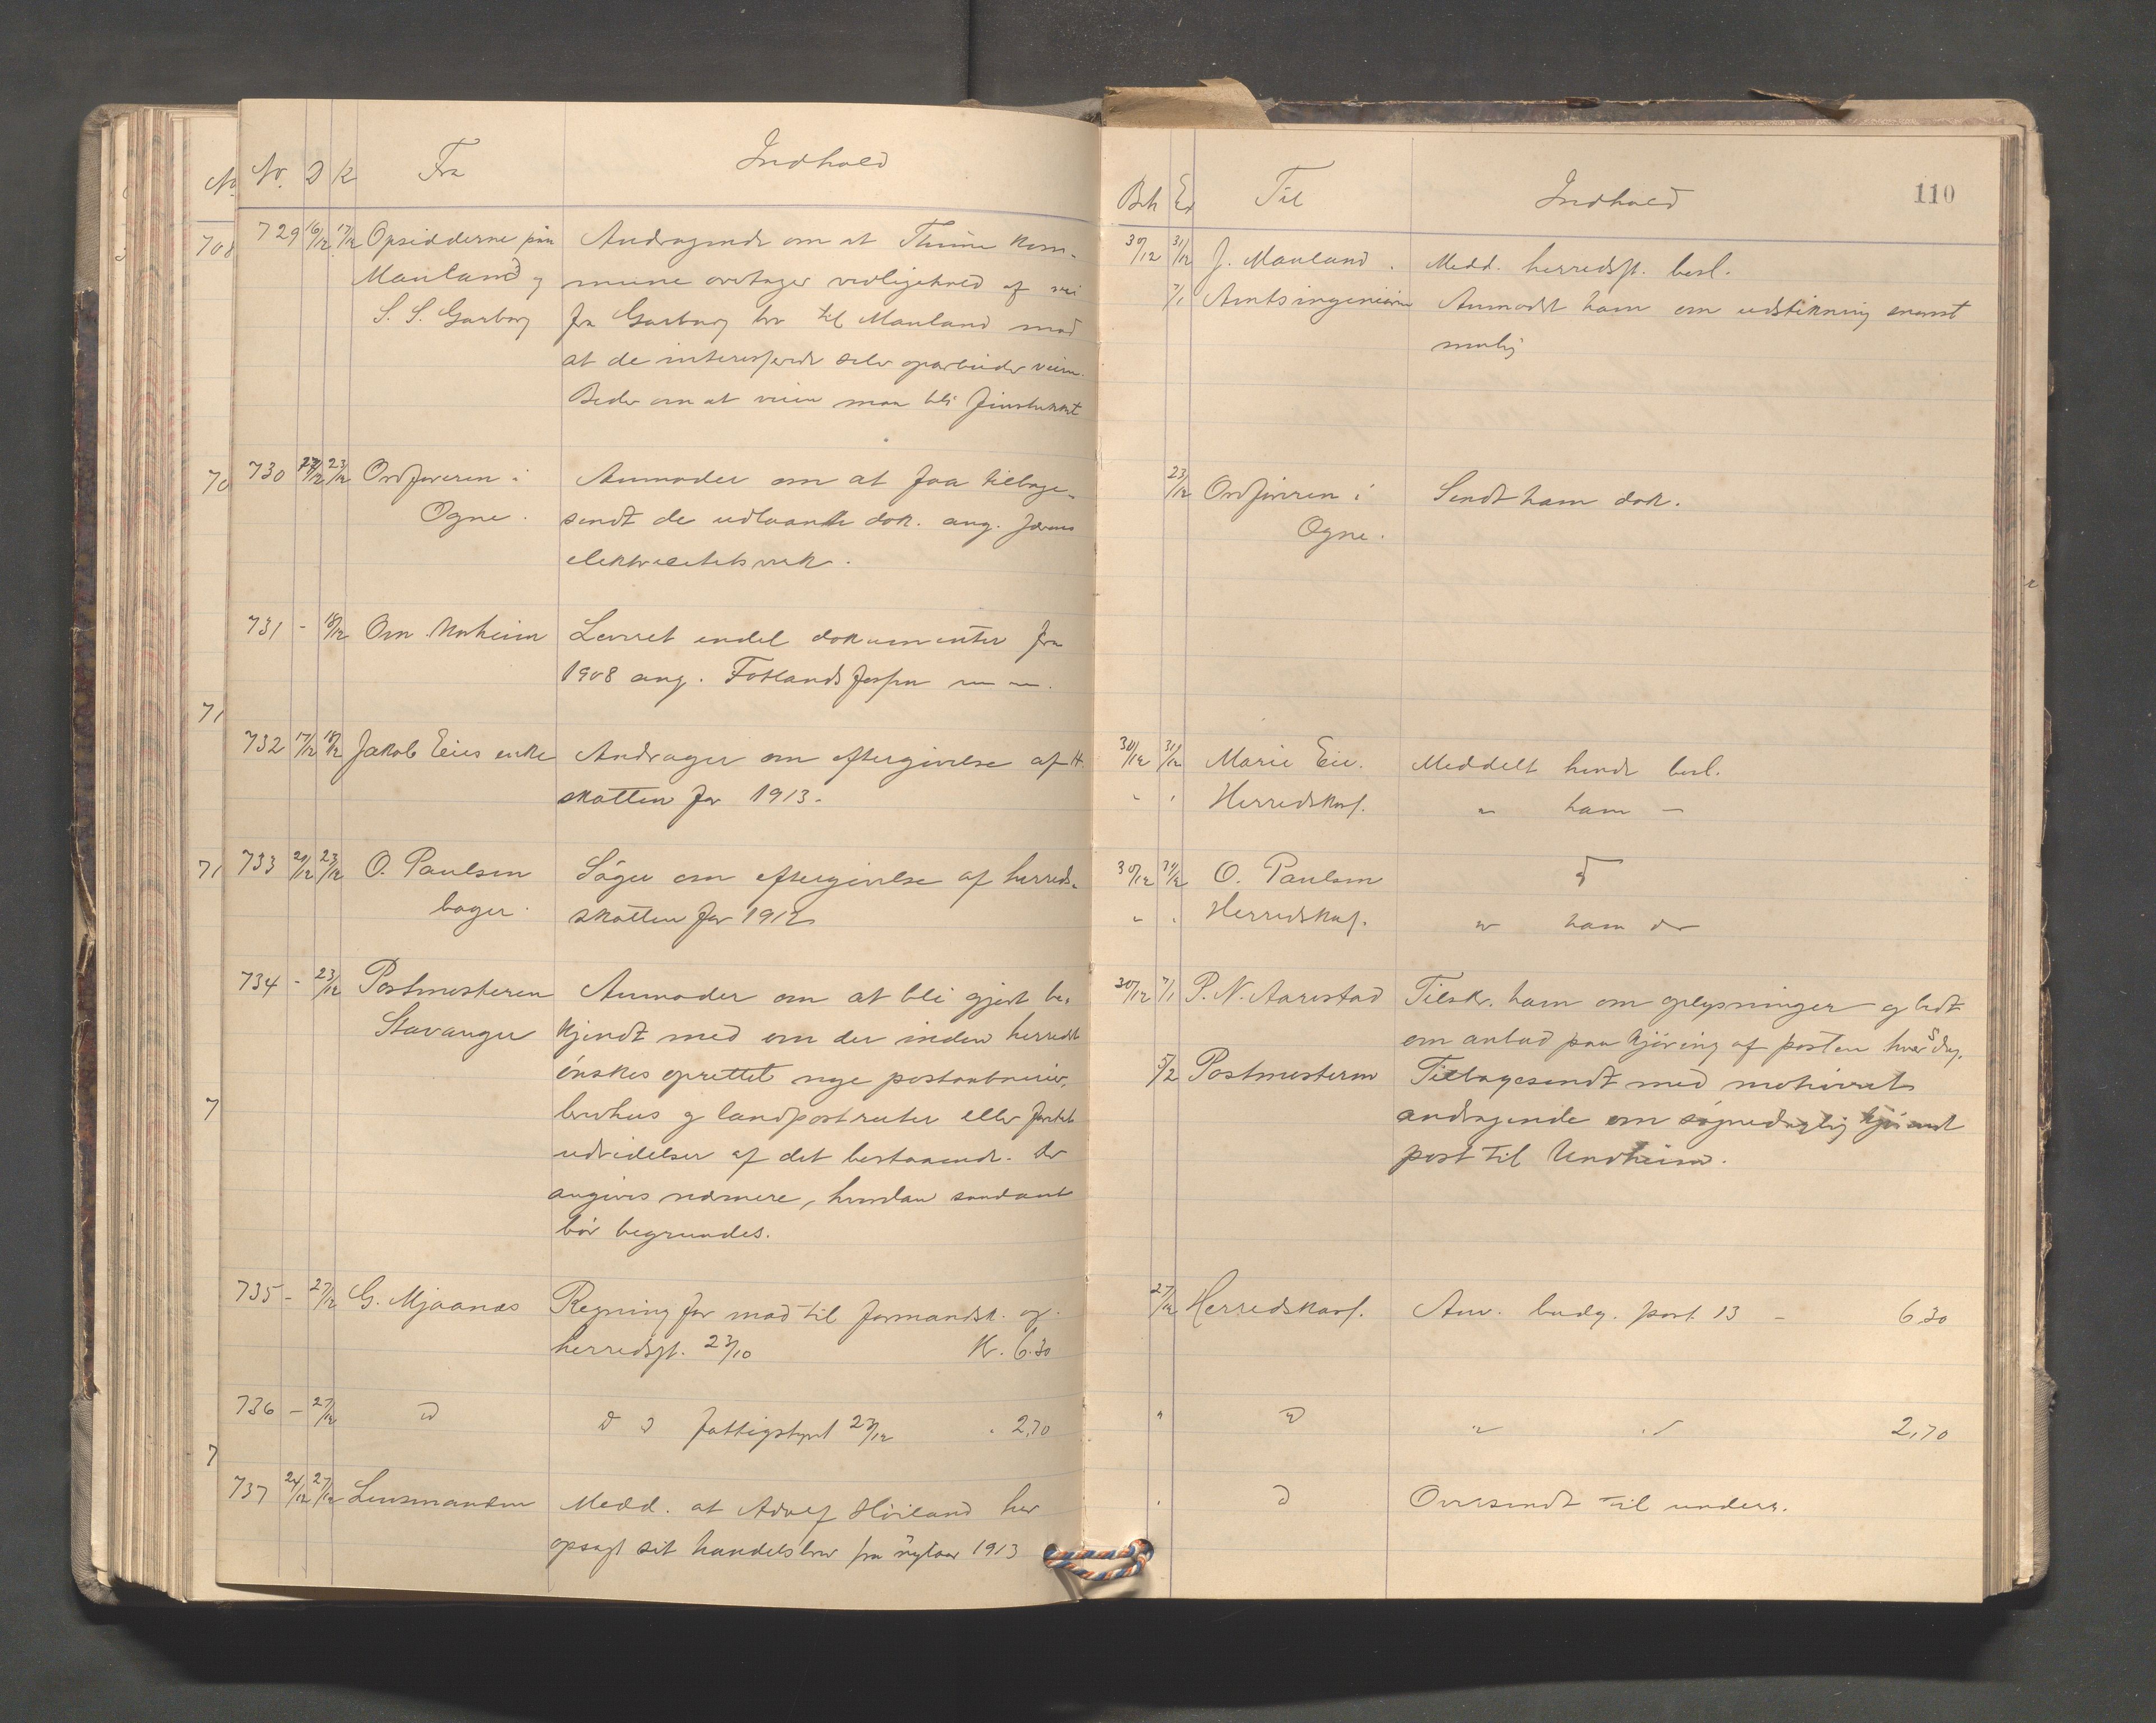 No. D K Fra Indhold
729 16/12 17/12 Opsidderne paa Andragende om at Thime kom-
Mauland og mune overtager vedligehold af vei
S. S. Garborg fra Garborg bro til Mauland mod
at de interesserede selv oparbeider veien.
Beder om at veien maa bli
730 23/12 Ordføreren i Anmoder om at faa tilbage-
Ogne. sendt de udlaante dok. ang. Jærens
elektricitetsverk.
731 - 18/12 Om. Leveret endel dokumenter fra
1908 ang. Fotlandsfossen m m.
732 17/12 18/12 Jakob Eies enke Andrager om eftergivelse af H.
skatten for 1913.
733 21/12 23/12 O. Paulsen Søger om eftergivelse af herreds-
bager. skatten for 1912
734 - 23/12 Postmesteren Anmoder om at bli gjort be-
Stavanger kjendt med om der inden herredet
ønskes oprettet nye postaabnerier,
brevhus og landpostruter eller foretat
udvidelser af det bestaaende. Der
angives nærmere, hvordan saadant
bør begrundes.
735 - 27/12 G. Mjaanes Regning for mad til formandsk. og
herredsst. 23/10 Kr. 6.30
736 - 27/12 D D D fattigstyret 23/12 " 2,70
737 24/12 27/12 Lensmanden Medd. at Adolf Høiland har
opsagt sit handelsbrev fra nytaar 1913
110
Beh Ex Til Indhold
30/12 31/12 J. Mauland. Medd. herredsst. besl.
7/1 Amtsingeniøren Anmodet ham om udstikning snarest
mulig
23/12 Ordføreren i Sendt ham dok.
Ogne.
30/12 31/12 Marie Eie. Meddelt hende besl.
" " Herredskas. " ham -
30/12 31/12 O. Paulsen D
" " Herredskas. " ham do
30/12 7/1 P. N. Aarestad Tilskr. ham om oplysninger og bedt
om anbud paa kjøring af posten hver S dag.
5/2 Postmesteren Tilbagesendt med motiveret
andragende om søgnedaglig kjørende
post til Undheim.
27/12 Herredskas. Anv. budg. post 13 - 6.30
" D " " 2,70
" D Oversendt til underr.
708
70
71
71
7
7